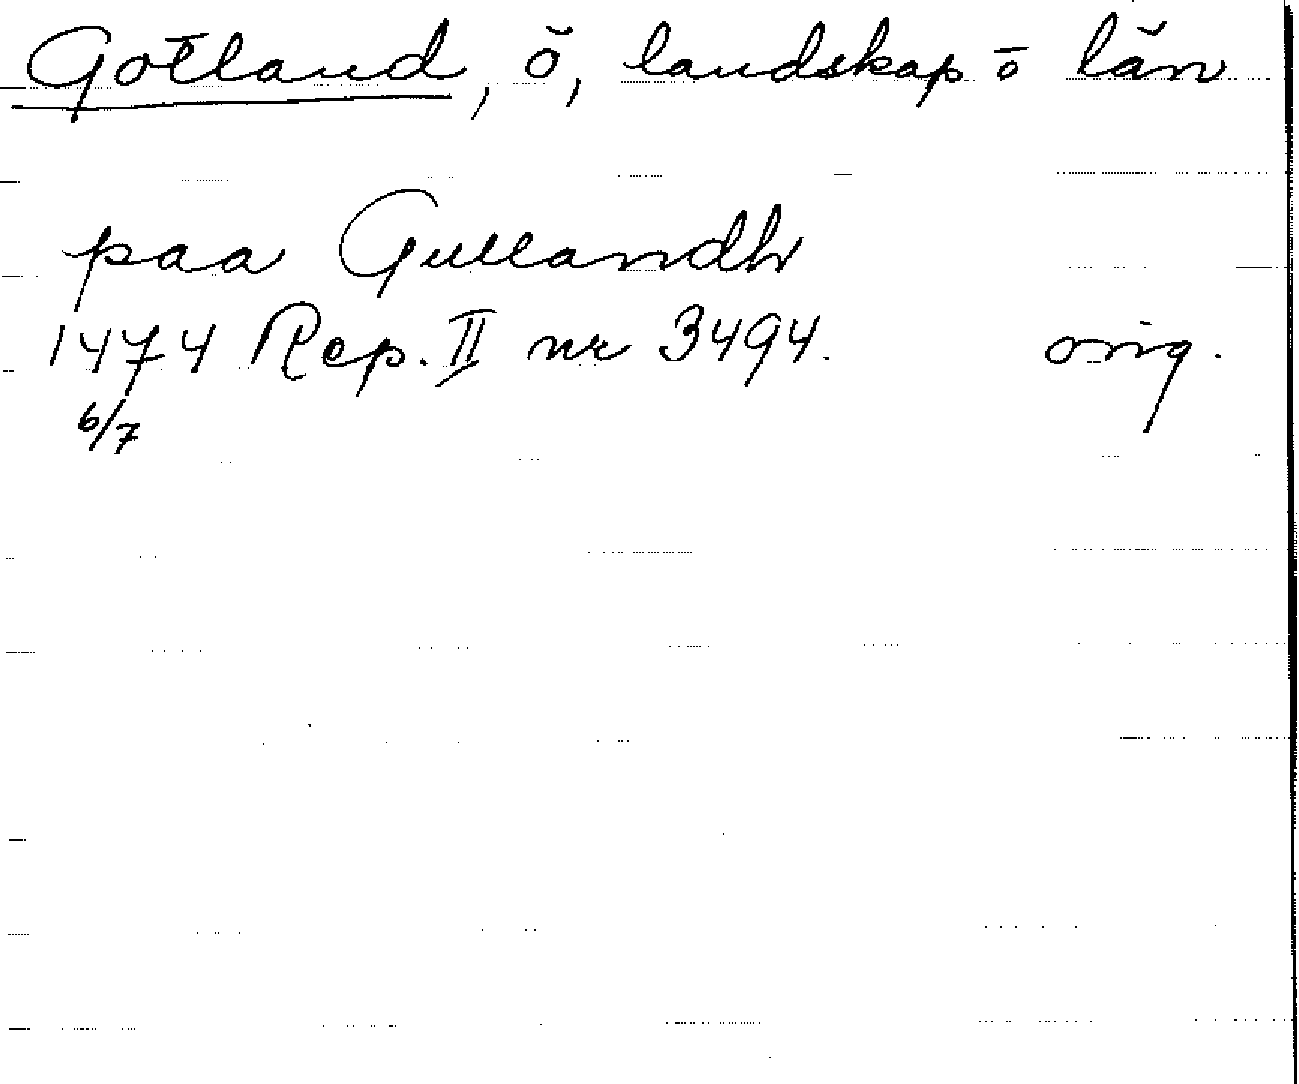 Gotland, ö, landskap o län
paa Gullandh
1474 Rep. II nr 3494. orig.
6/7